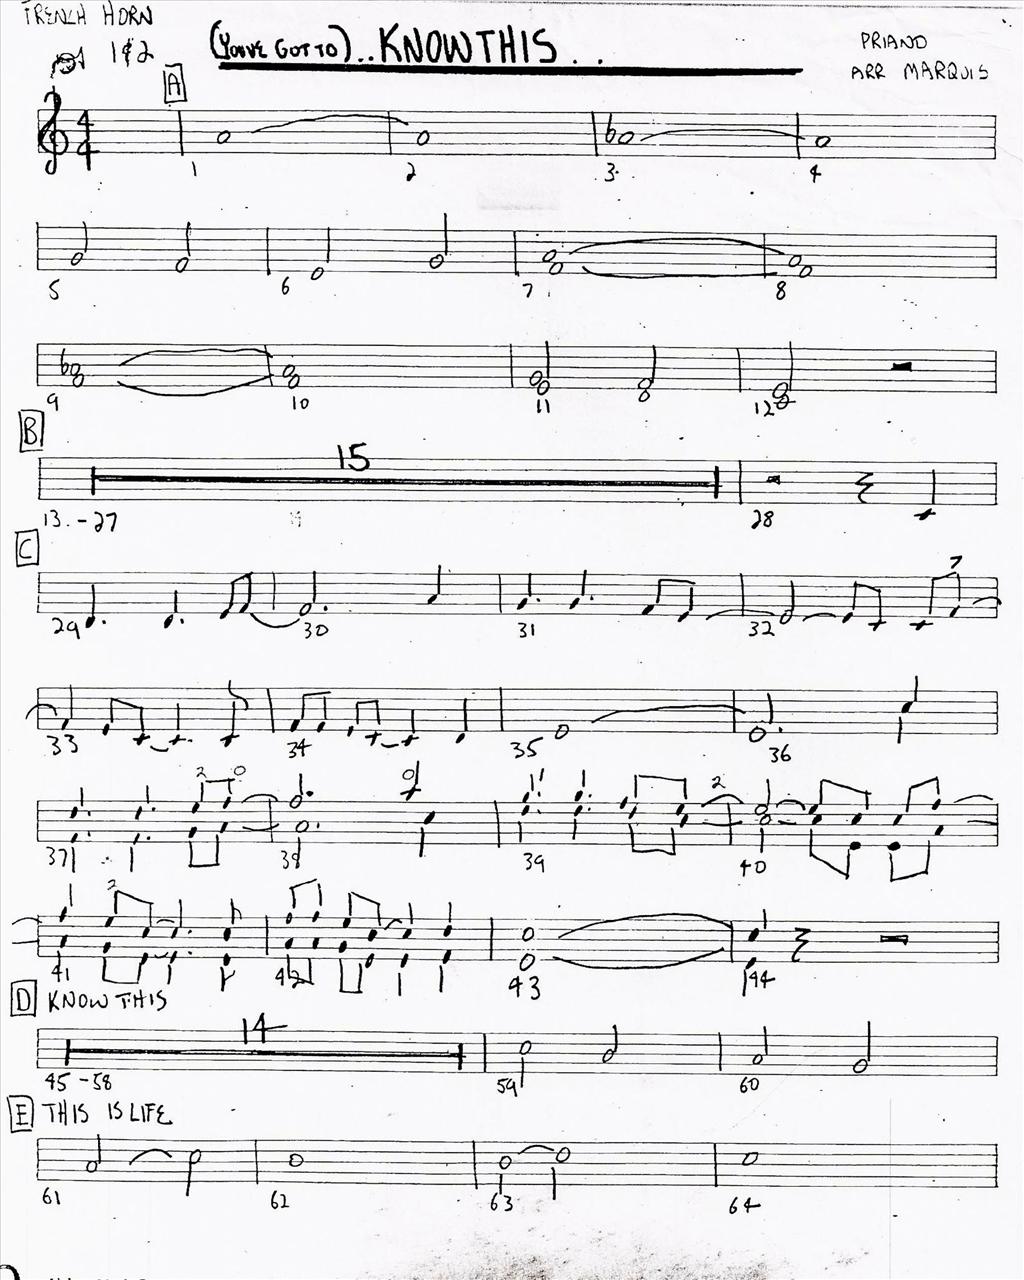 FRENCH HORN
1&2
(YOU'VE GOT TO)..KNOW THIS..
PRIANO
ARR MARQUIS
A
4
4
1 2 3 4
5 6 7 8
9 10 11 12
B
15
13.-27 28
C
7
29 30 31 32
33 34 35 36
2
37 38 39 40
2
2
41 42 43 44
D KNOW THIS
14
45-58 59 60
E THIS IS LIFE
61 62 63 64